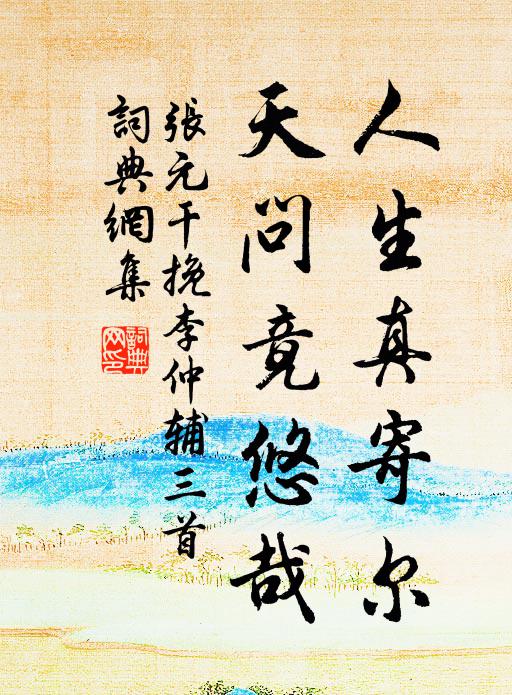 人生真寄尔
天问竟悠哉
張元干挽李仲辅三首
詞典網集
詞典網印